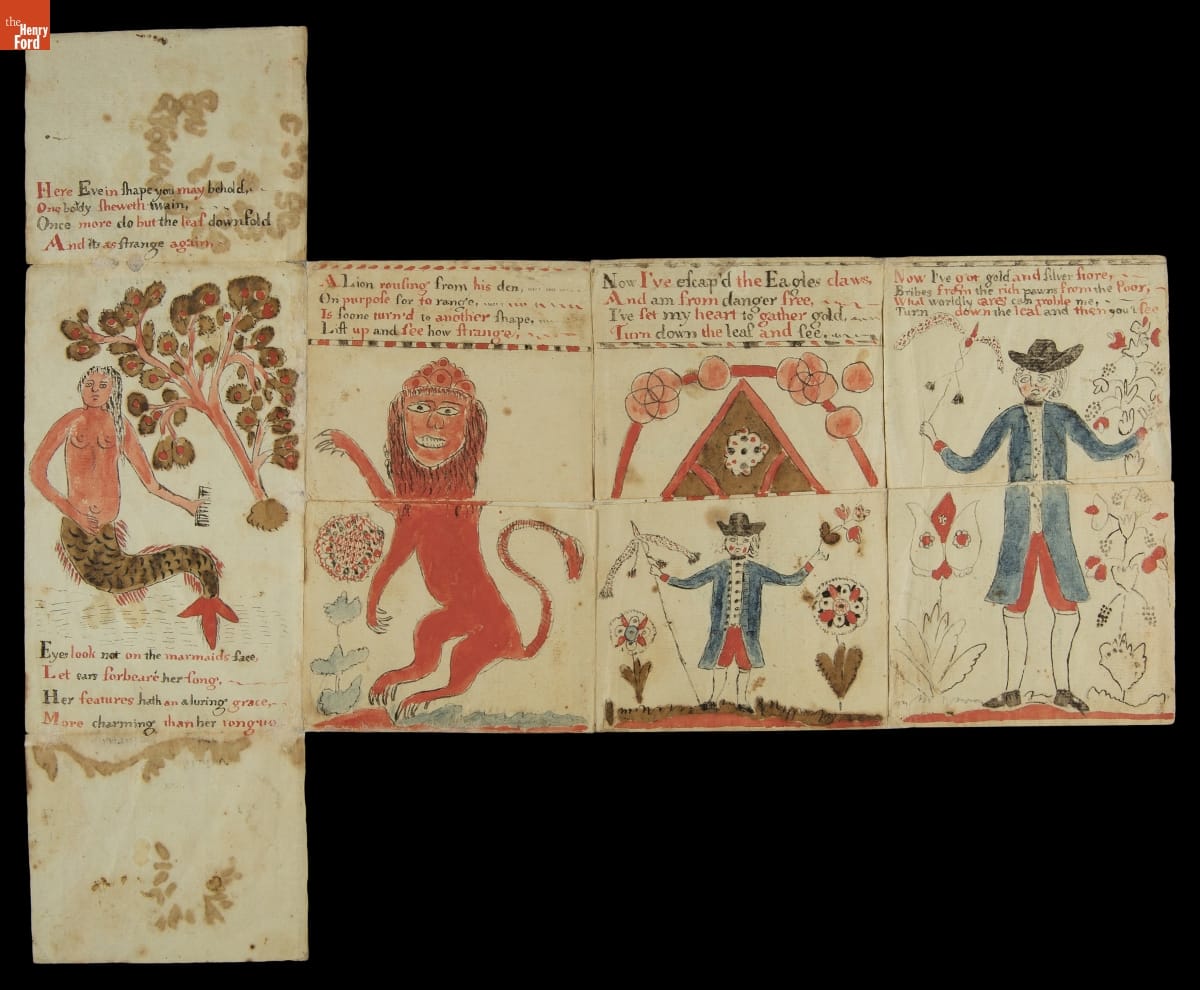 the
Henry
Ford
Here Eve in ſhape you may behold,
One boldy ſheweth twain,
Once more do but the leaf downfold
And its as ſtrange again,
Eyes look not on the marmaids face,
Let ears forbeare her ſong,
Her features hath an aluring grace,
More charming than her tongue
A Lion rouſing from his den,
On purpoſe for to range,
Is ſoone turn'd to another ſhape,
Lift up and ſee how ſtrange,
Now I've eſcap'd the Eagles claws,
And am from danger free,
I've ſet my heart to gather gold,
Turn down the leaf and ſee,
Now I've got gold and ſilver ſtore,
Bribes from the rich pawns from the Poor,
What worldly cares can troble me,
Turn down the leaf and then you'll ſee